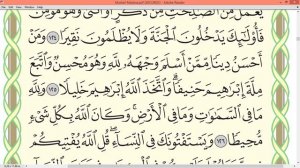 يَعْمَلْ مِنَ ٱلصَّٰلِحَٰتِ مِن ذَكَرٍ أَوْ أُنثَىٰ وَهُوَ مُؤْمِنٌ
فَأُو۟لَٰٓئِكَ يَدْخُلُونَ ٱلْجَنَّةَ وَلَا يُظْلَمُونَ نَقِيرًا ١٢٤ وَمَنْ
أَحْسَنُ دِينًا مِّمَّنْ أَسْلَمَ وَجْهَهُۥ لِلَّهِ وَهُوَ مُحْسِنٌ وَٱتَّبَعَ
مِلَّةَ إِبْرَٰهِيمَ حَنِيفًا ۗ وَٱتَّخَذَ ٱللَّهُ إِبْرَٰهِيمَ خَلِيلًا ١٢٥ وَلِلَّهِ
مَا فِى ٱلسَّمَٰوَٰتِ وَمَا فِى ٱلْأَرْضِ ۚ وَكَانَ ٱللَّهُ بِكُلِّ شَىْءٍ
مُّحِيطًا ١٢٦ وَيَسْتَفْتُونَكَ فِى ٱلنِّسَآءِ ۖ قُلِ ٱللَّهُ يُفْتِيكُمْ